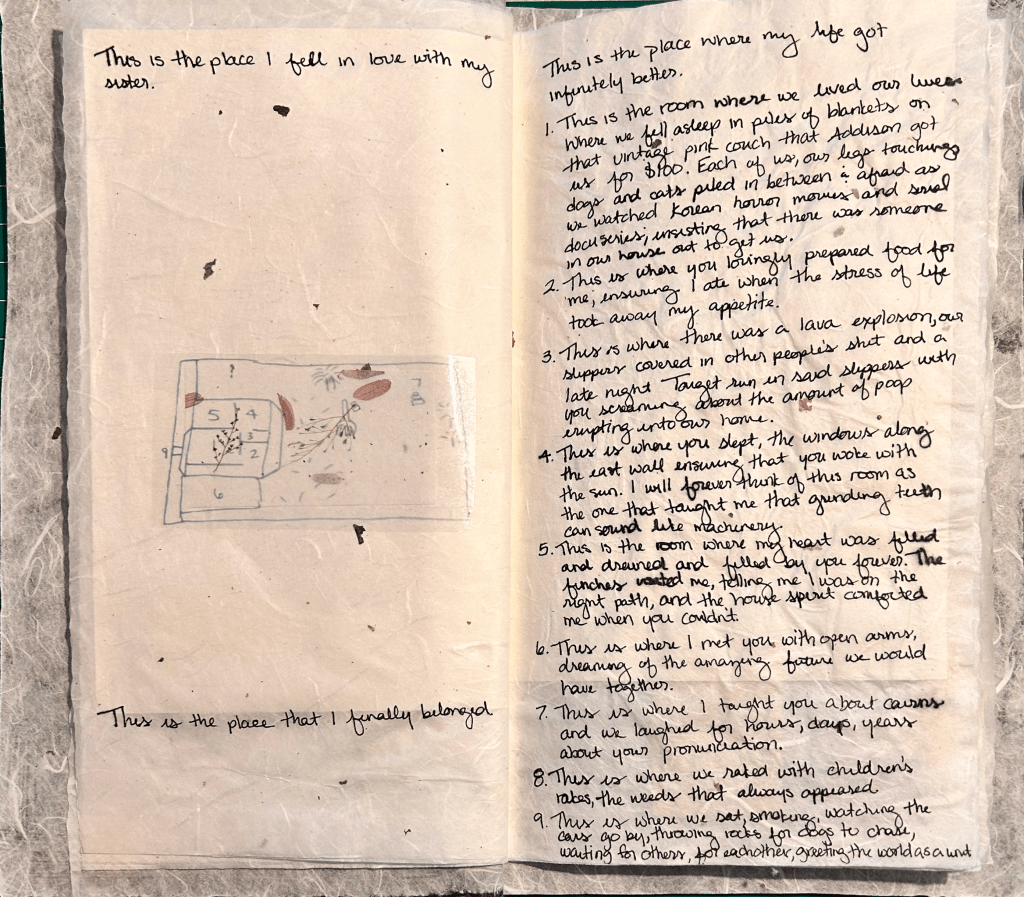 This is the place I fell in love with my
sister.
5
4
3
2
9
6
7
8
This is the place that I finally belonged
This is the place where my life got
infinitely better.
1. This is the room where we lived our lives
where we fell asleep in piles of blankets on
that vintage pink couch that Addison got
us for $100. Each of us, our legs touching,
dogs and cats piled in between & afraid as
we watched Korean horror movies and serial
docuseries, insisting that there was someone
in our house out to get us.
2. This is where you lovingly prepared food for
me, ensuring I ate when the stress of life
took away my appetite.
3. This is where there was a lava explosion, our
slippers covered in other people's shit and a
late night Target run in said slippers with
you screaming about the amount of poop
erupting into our home.
4. This is where you slept, the windows along
the east wall ensuring that you woke with
the sun. I will forever think of this room as
the one that taught me that grinding teeth
can sound like machinery.
5. This is the room where my heart was filled
and drained and filled by you forever. The
finches visited me, telling me I was on the
right path, and the house spirit comforted
me when you couldn't.
6. This is where I met you with open arms,
dreaming of the amazing future we would
have together.
7. This is where I taught you about cairns
and we laughed for hours, days, years
about your pronunciation.
8. This is where we raked with children's
rakes, the weeds that always appeared
9. This is where we sat, smoking, watching the
cars go by, throwing rocks for dogs to chase,
waiting for others, for eachother, greeting the world as a unit